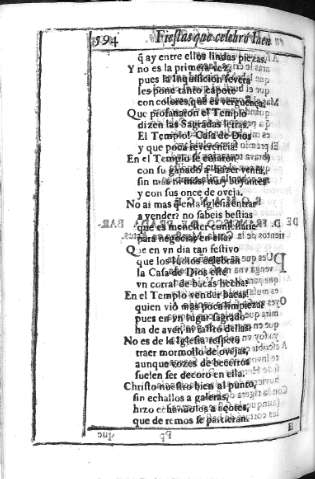 594 Fiestas que celebrò Iaen
q̃ ay entre ellos lindas piezas.
Y no es la primera vez,
pues la Inquisicion severa
les pone tanto çapote
con colores, que es verguença.
Que profanaron el Templo
dizen las Sagradas letras.
El Templo! Casa de Dios
y que poca reverencia!
En el Templo se entaron
con su ganado a hazer venta,
sin mas ni mas muy boyantes
y con sus once de oveja.
No ai mas q̃ en la Iglesia entrar
a vender? no sabeis bestias
que es menester
para negociar en ella?
Que en vn dia tan festivo
que los Iudios celebran
la Casa de Dios esté
vn corral de bacas hecha!
En el Templo vender bacas!
quien vió mas poca limpieza
pues en vn lugar sagrado
ha de aver, ni rastro dellas
No es de la Iglesia respeto
traer mormollo de ovejas,
aunque vozes de becerros
suelen ser decoro en ella.
Christo nuestro bien al punto,
sin echallos a galeras,
hizo echandolos a açotes,
que de remos se partieran.